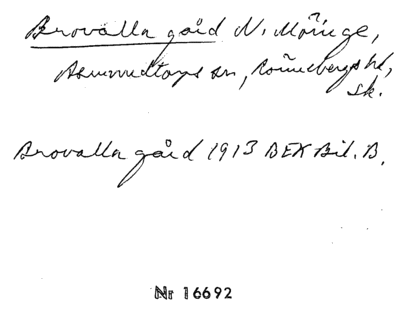 Brovalla gård N. Möinge,
Asmundtorps sn, Rönnebergs hd,
Sk.
Brovalla gård 1913 BEK Bil. B.
Nr 16692